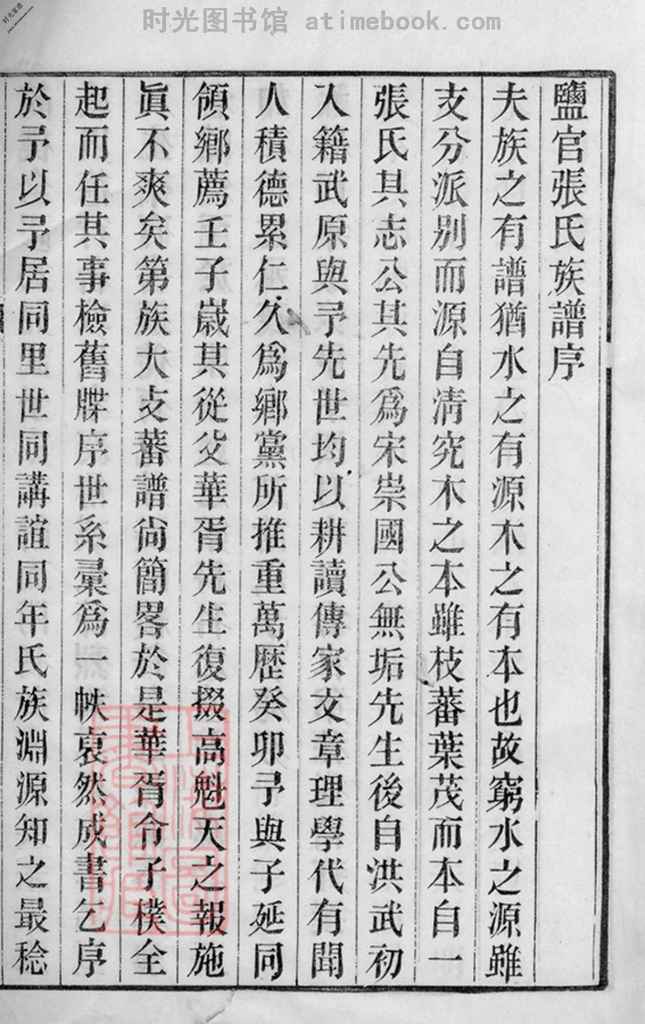 时光图书馆 atimebook.com
鹽官張氏族譜序
夫族之有譜猶水之有源木之有本也故窮水之源雖
支分派别而源自清究木之本雖枝蕃葉茂而本自一
張氏其志公其先爲宋崇國公無垢先生後自洪武初
入籍武原與予先世均以耕讀傳家文章理學代有聞
人積德累仁久爲鄉黨所推重萬歷癸卯予與子延同
領鄉薦壬子嵗其從父華胥先生復掇高魁天之報施
眞不爽矣第族大支蕃譜尙簡畧於是華胥令子樸全
起而任其事檢舊牒序世系彙爲一帙裒然成書乞序
於予以予居同里世同講誼同年氏族淵源知之最稔